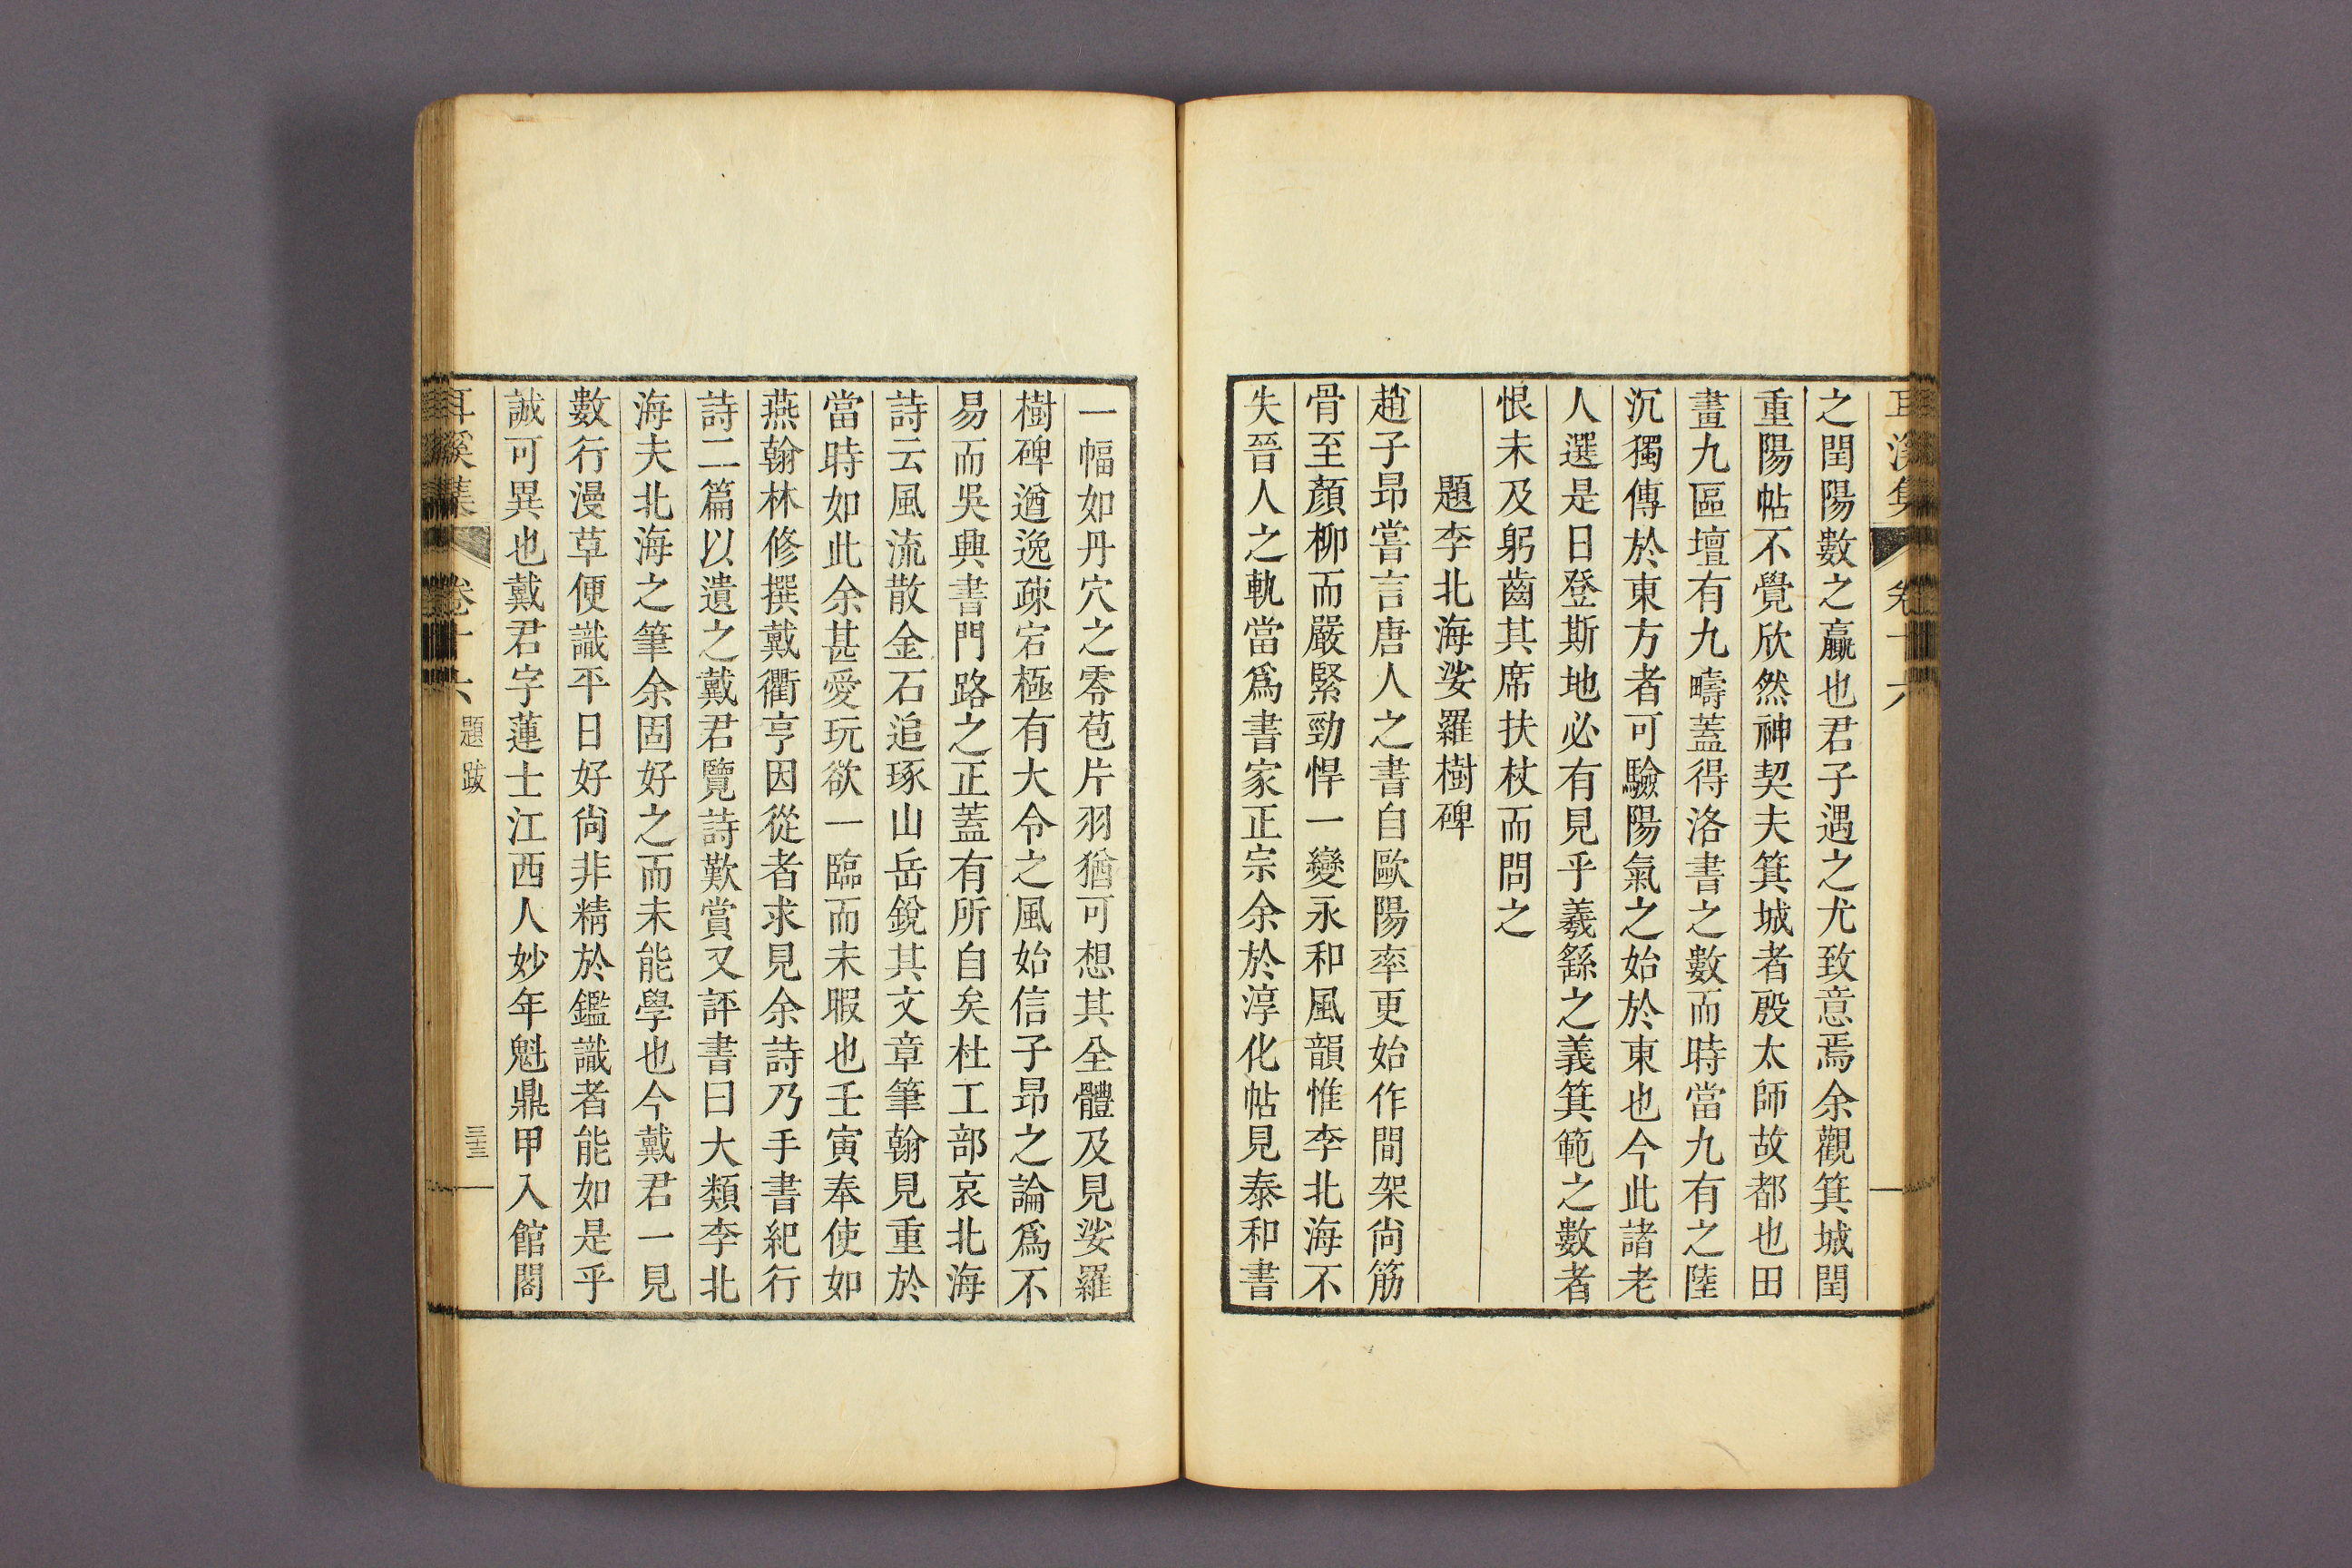 之閏陽數之贏也君子遇之尤致意焉余觀箕城閏
重陽帖不覺欣然神契夫箕城者殷太師故都也田
畫九區壇有九疇蓋得洛書之數而時當九有之陸
沉獨傳於東方者可驗陽氣之始於東也今此諸老
人選是日登斯地必有見乎羲繇之義箕範之數者
恨未及躬齒其席扶杖而問之
題李北海娑羅樹碑
趙子昂嘗言唐人之書自歐陽率更始作間架尙筋
骨至顏柳而嚴緊勁悍一變永和風韻惟李北海不
失晉人之軌當爲書家正宗余於淳化帖見泰和書
一幅如丹穴之零苞片羽猶可想其全體及見娑羅
樹碑遒逸疎宕極有大令之風始信子昂之論爲不
易而吳興書門路之正蓋有所自矣杜工部哀北海
詩云風流散金石追琢山岳銳其文章筆翰見重於
當時如此余甚愛玩欲一臨而未暇也壬寅奉使如
燕翰林修撰戴衢亨因從者求見余詩乃手書紀行
詩二篇以遺之戴君覽詩歎賞又評書曰大類李北
海夫北海之筆余固好之而未能學也今戴君一見
數行漫草便識平日好尙非精於鑑識者能如是乎
誠可異也戴君字蓮士江西人妙年魁鼎甲入館閣
耳溪集 卷十六 題跋 三十三